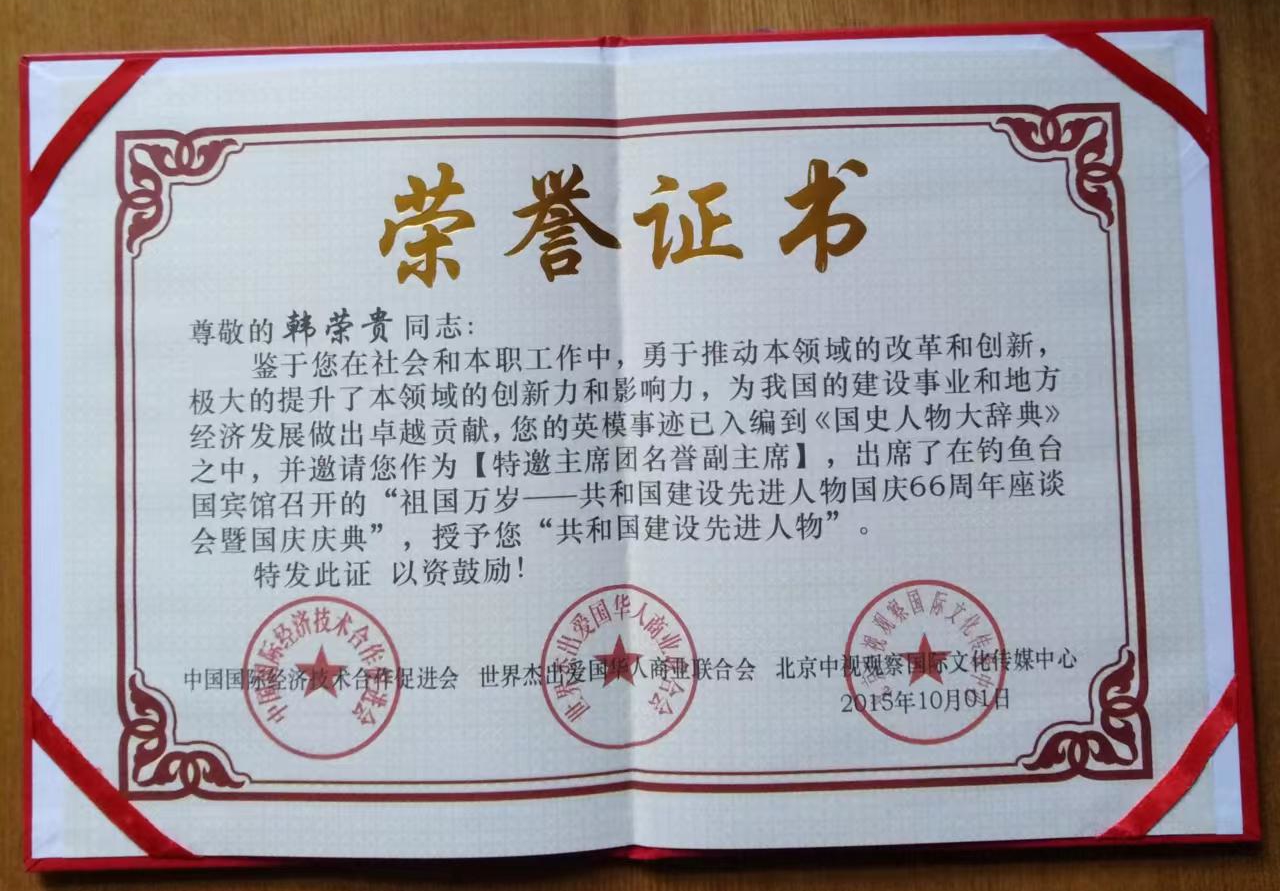 荣誉证书
尊敬的韩荣贵同志：
鉴于您在社会和本职工作中，勇于推动本领域的改革和创新，
极大的提升了本领域的创新力和影响力，为我国的建设事业和地方
经济发展做出卓越贡献，您的英模事迹已入编到《国史人物大辞典》
之中，并邀请您作为【特邀主席团名誉副主席】，出席了在钓鱼台
国宾馆召开的“祖国万岁——共和国建设先进人物国庆66周年座谈
会暨国庆庆典”，授予您“共和国建设先进人物”。
特发此证 以资鼓励！
中国国际经济技术合作促进会 世界杰出爱国华人商业联合会 北京中视观察国际文化传媒中心
2015年10月01日
中国国际经济技术合作促进会
世界杰出爱国华人商业联合会
视观察国际文化传